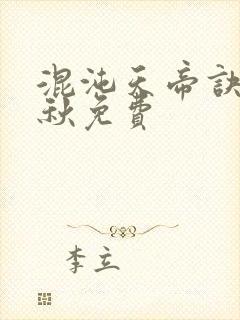 混沌天帝訣
秋免費
李立